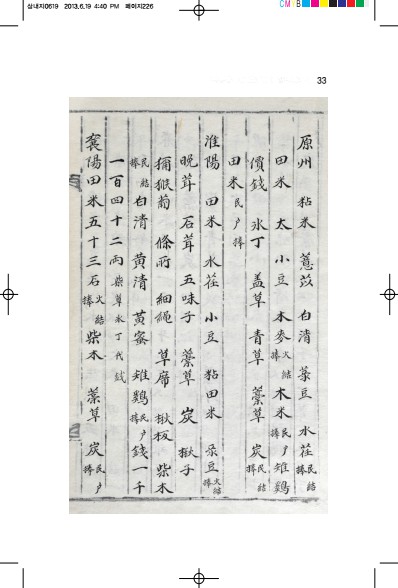 삼내지0619 2013.6.19 4:40 PM 페이지226
CM
33
原州 粘米 薏苡 白清 菉豆 水荏民結捧
田米 太 小豆 本麥火結捧 木米民戶捧 雉鷄
價錢 氷丁 盖草 青草 藁草 炭民結捧
田米民戶捧
淮陽 田米 水荏 小豆 粘田米 菉豆火結捧
晩茸 石茸 五味子 藁草 炭 楸子
獼猴萄 條所 細繩 草席 楸板 柴木
民結捧 白清 黃清 黃蜜 雉鷄民戶捧 錢一千
一百四十二兩柴草氷丁代錢
襄陽 田米五十三石火結捧 柴木 藁草 炭民戶捧